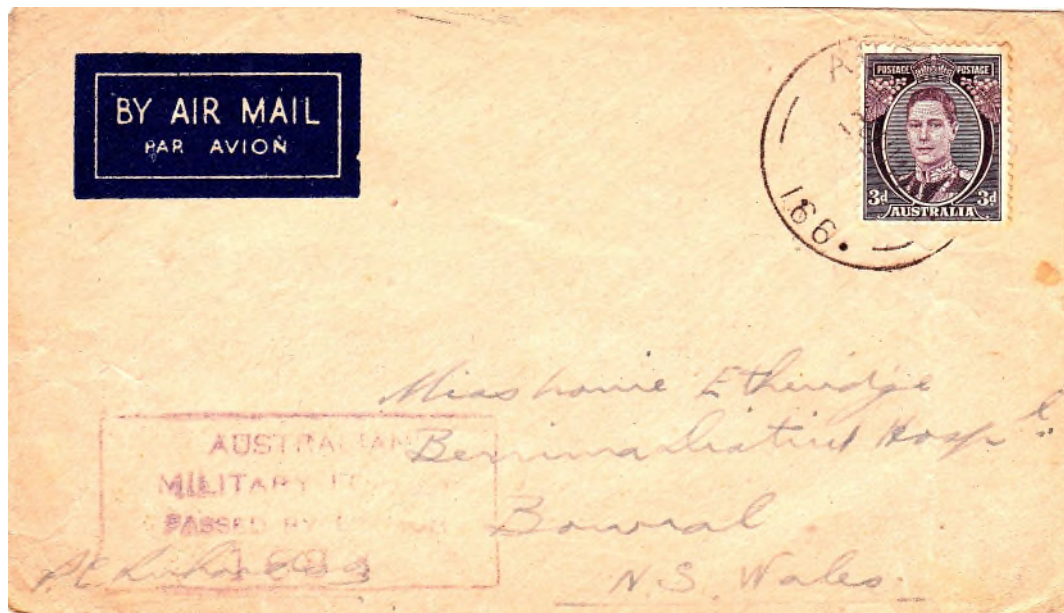 BY AIR MAIL
PAR AVION
POSTAGE POSTAGE
3d 3d
AUSTRALIA
166
Miss Etheridge
Berrima District Hospl
Bowral
N.S. Wales
AUSTRALIAN
MILITARY
PASSED BY